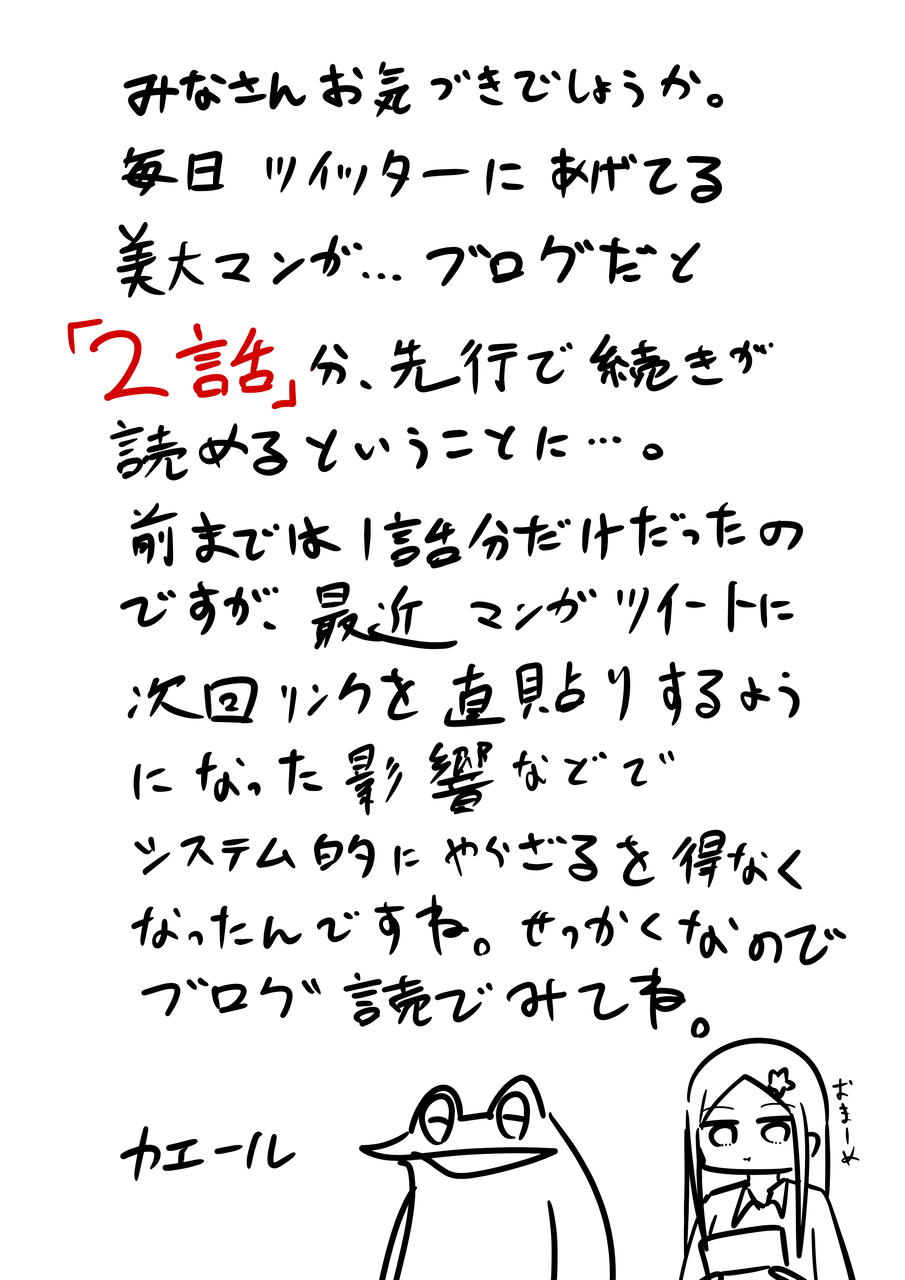 みなさんお気づきでしょうか。
毎日ツイッターにあげてる
美大マンガ…ブログだと
「2話」分、先行で続きが
読めるということに…。
前までは1話分だけだったの
ですが、最近マンガツイートに
次回リンクを直貼りするよう
になった影響などで
システム的にやらざるを得なく
なったんですね。せっかくなので
ブログ読でみてね。
カエール
おまーめ